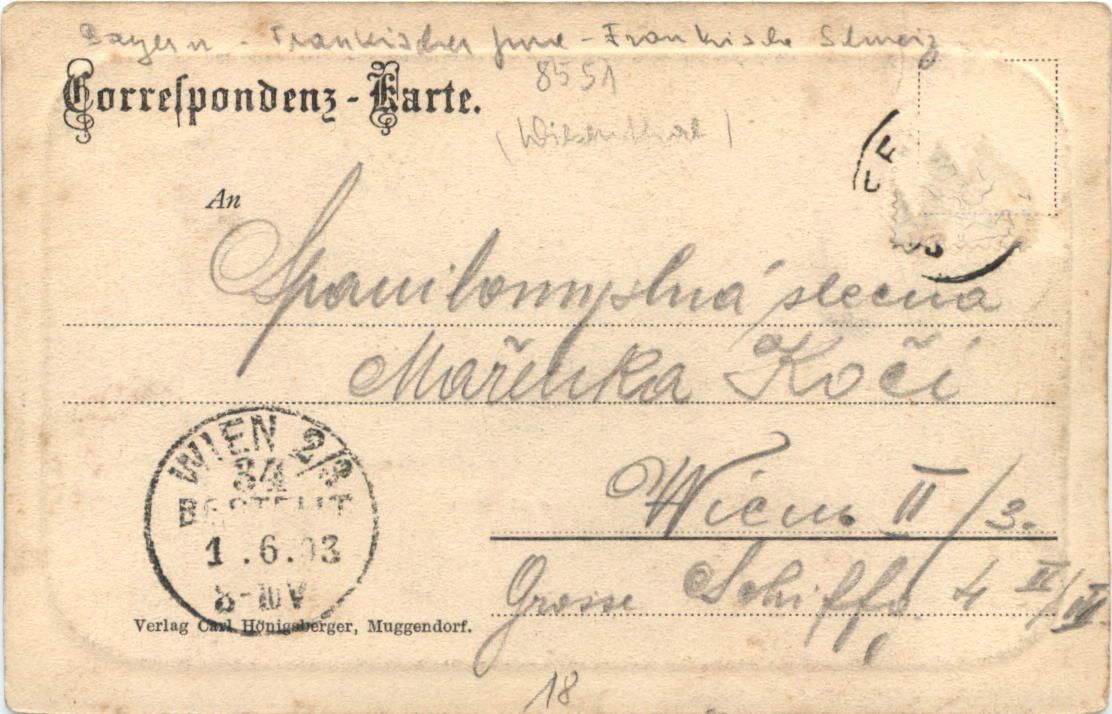 Bayern - Fränkischer Jura - Fränkische Schweiz
8551
Correſpondenz-Karte.
(Wiesenthal)
An
Spanilomyslná slečna
Mařenka Kočí
WIEN 2/3
34
BESTELLT
1.6.03
8-10V
Wien II/3.
Grosse Schiffg 4 II/
Verlag Carl Hönigsberger, Muggendorf.
18